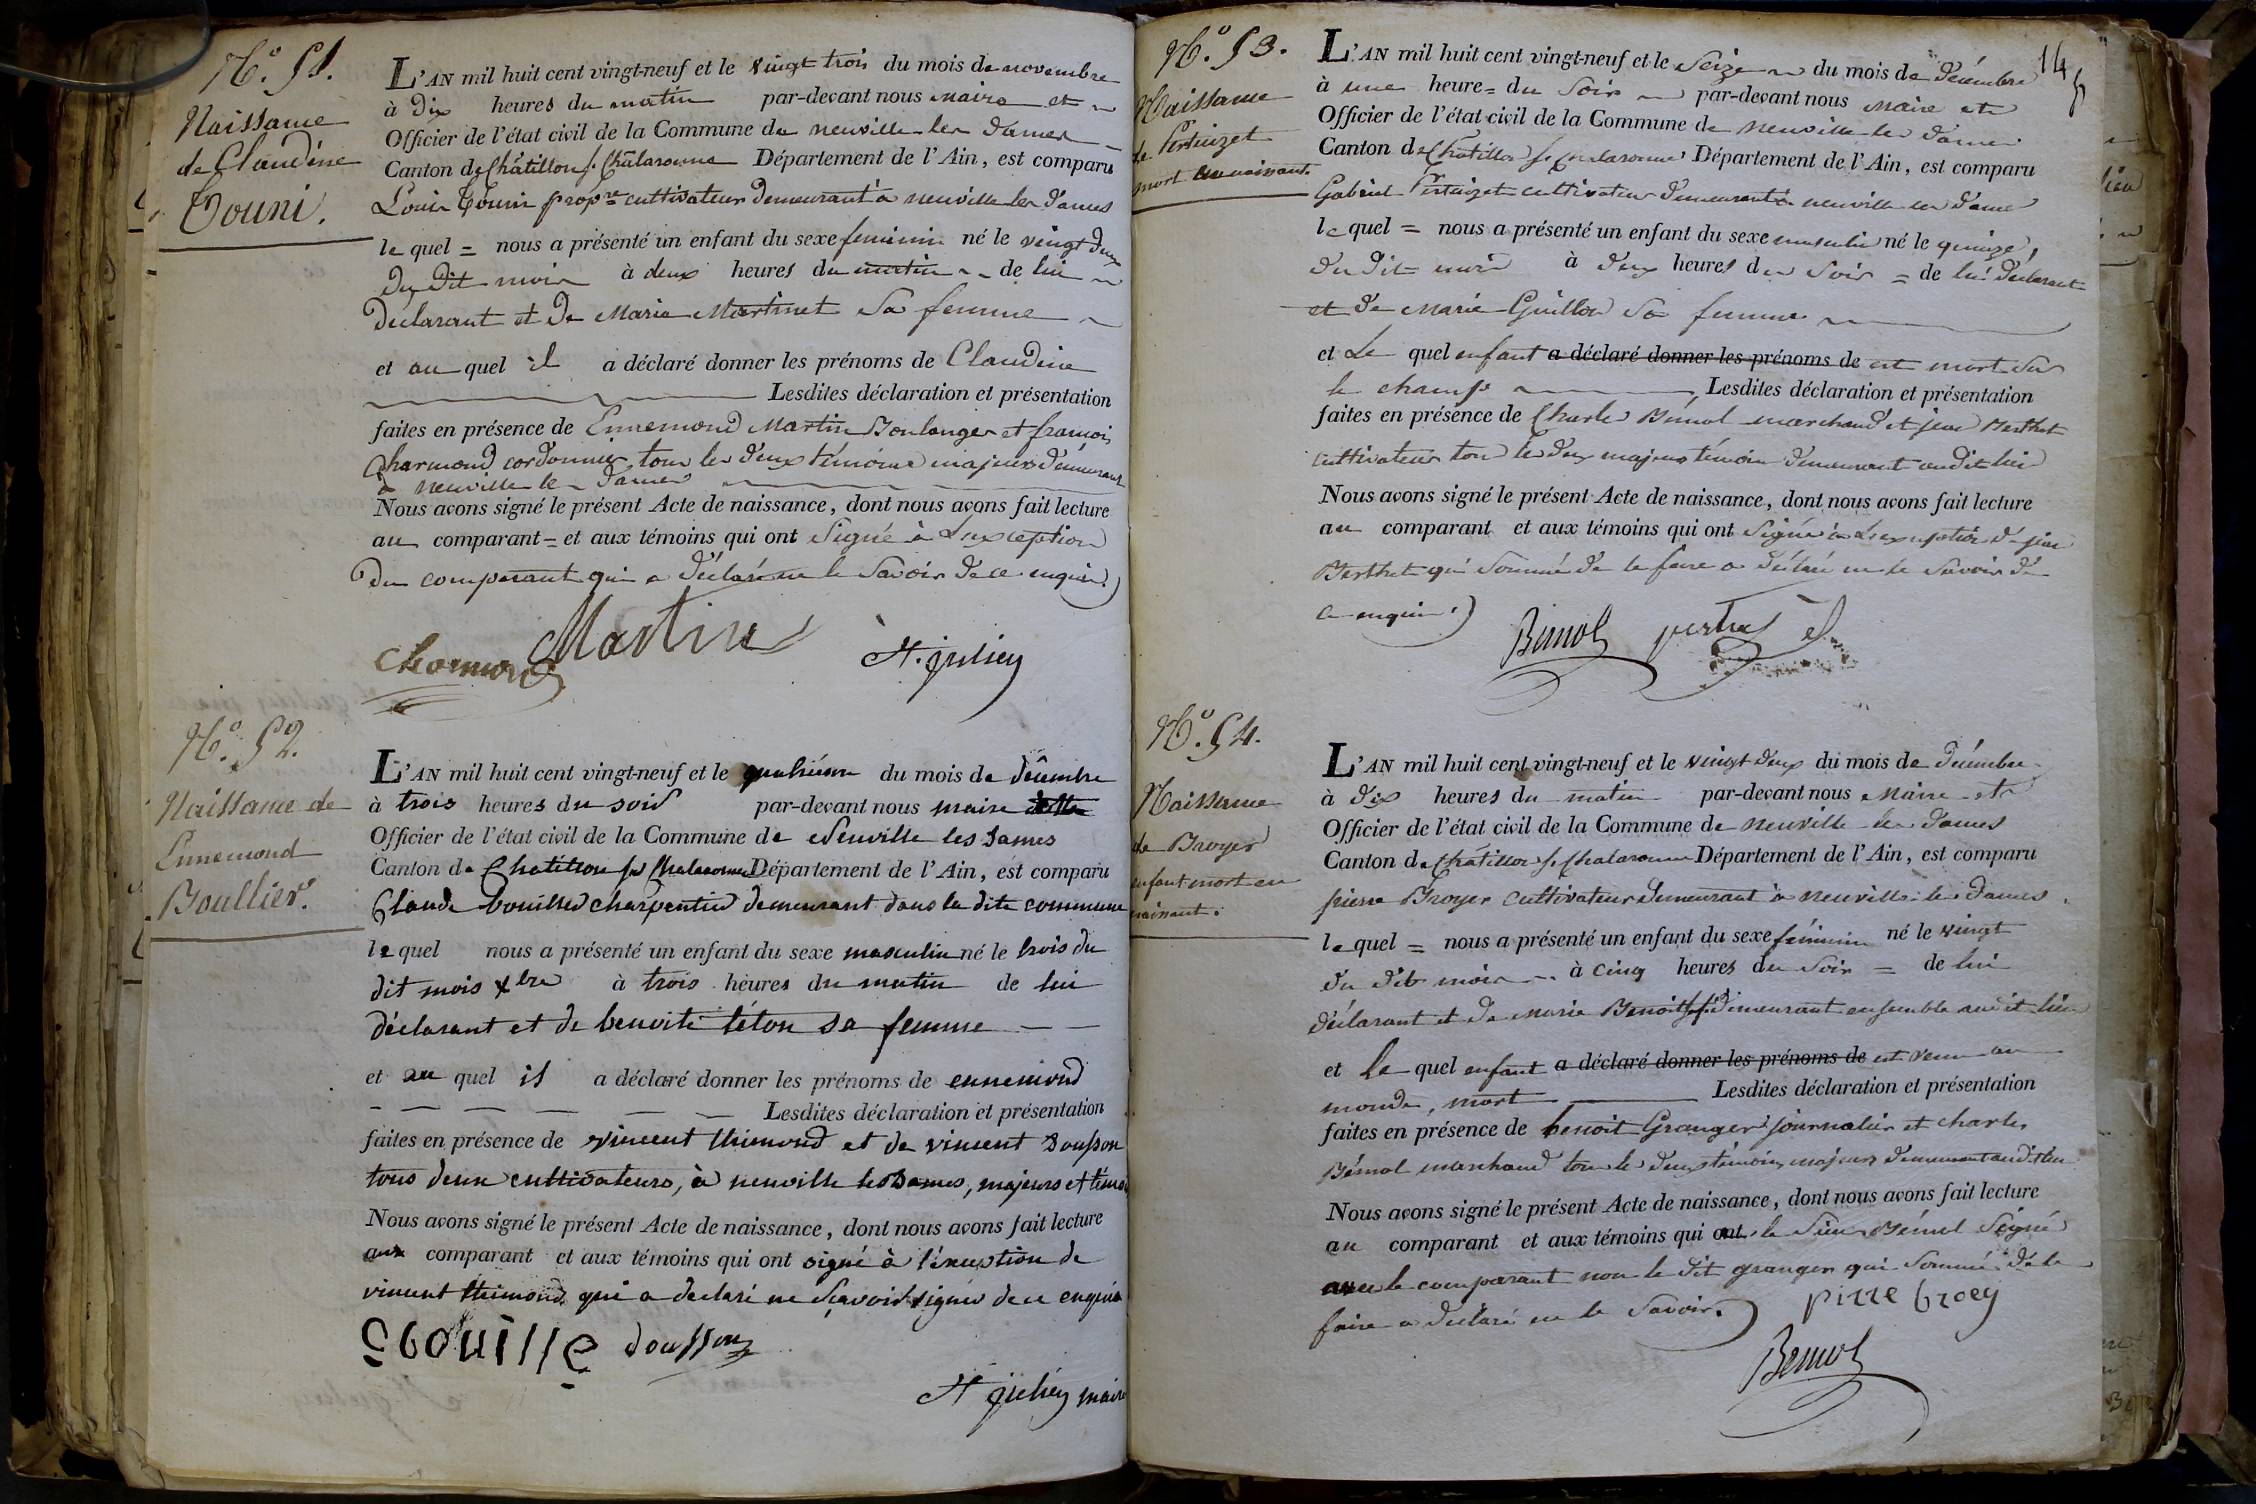 N.o 51.
Naissance
de Claudine
Touni.
L'AN mil huit cent vingt-neuf et le vingt trois du mois de novembre
à dix heures du matin par-devant nous maire et
Officier de l'état civil de la Commune de neuville les dames
Canton de Châtillon s. Chalaronne Département de l'Ain, est comparu
Louis Touni propre cultivateur demeurant à neuville les dames
le quel = nous a présenté un enfant du sexe feminin né le vingt deux
du dit mois à deux heures du matin de lui
declarant et de Marie Martinet sa femme
et au quel il a déclaré donner les prénoms de Claudine
Lesdites déclaration et présentation
faites en présence de Ennemond Martin Boulanger et françois
Charmond cordonnier tous les deux témoins majeurs demeurant
à neuville les dames
Nous avons signé le présent Acte de naissance, dont nous avons fait lecture
au comparant = et aux témoins qui ont signé à L'exception
du comparant qui a déclaré ne le savoir de ce enquis.
Martin
Charmond
St. julien
N.o 52.
Naissance de
Ennemond
Boullier.
L'AN mil huit cent vingt-neuf et le quatrième du mois de décembre
à trois heures du soir par-devant nous maire
Officier de l'état civil de la Commune de Neuville les dames
Canton de Chatillon sur Chalaronne Département de l'Ain, est comparu
Claude bouiller charpentier demeurant dans la dite commune
le quel nous a présenté un enfant du sexe masculin né le trois du
dit mois xbre à trois heures du matin de lui
déclarant et de benoite léton sa femme
et au quel il a déclaré donner les prénoms de ennemond
Lesdites déclaration et présentation
faites en présence de vincent thimond et de vincent Dousson
tous deux cultivateurs, à neuville les dames, majeurs et témoi
Nous avons signé le présent Acte de naissance, dont nous avons fait lecture
aux comparant et aux témoins qui ont signé à l'exception de
vincent thimond qui a declaré ne sçavoir signer de ce enquis
cbouille dousson
St julien maire
145
N.o 53.
Naissance
de Pertuizet
mort en naissant.
L'AN mil huit cent vingt-neuf et le seize du mois de décembre
à une heure = du soir par-devant nous Maire et
Officier de l'état civil de la Commune de neuville les dames
Canton de Châtillon s. Chalaronne Département de l'Ain, est comparu
Gabriel Pertuizet cultivateur demeurant à neuville les dames
le quel = nous a présenté un enfant du sexe masculin né le quinze,
du dit mois à deux heures du soir = de lui déclarant
et de Marie Guillon sa femme
et Le quel enfant a déclaré donner les prénoms de est mort sur
le champ Lesdites déclaration et présentation
faites en présence de Charles Bémol marchand et jean Berthet
cultivateur tous les deux majeurs témoins demeurant audit lieu
Nous avons signé le présent Acte de naissance, dont nous avons fait lecture
au comparant et aux témoins qui ont signé à L'exception de jean
Berthet qui sommé de le faire a déclaré ne le savoir de
ce enquis.
Bémol
N.o 54.
Naissance
de Broyer
enfant mort en
naissant.
L'AN mil huit cent vingt-neuf et le vingt deux du mois de décembre
à dix heures du matin par-devant nous Maire et
Officier de l'état civil de la Commune de neuville les dames
Canton de Châtillon s. Chalaronne Département de l'Ain, est comparu
pierre Broyer cultivateur demeurant à neuville les dames.
le quel = nous a présenté un enfant du sexe féminin né le vingt
du dit mois à cinq heures du soir = de lui
déclarant et de Marie Benoit sf. demeurant ensemble audit lieu
et Le quel enfant a déclaré donner les prénoms de est venu au
monde, mort Lesdites déclaration et présentation
faites en présence de benoit Granger journalier et charles
Bémol marchand tous les deux témoins majeurs demeurant audit lieu
Nous avons signé le présent Acte de naissance, dont nous avons fait lecture
au comparant et aux témoins qui ont, le sieur Bémol signé
avec le comparant non le dit granger qui sommé de le
faire a déclaré ne le savoir.
pirre broey
Bemol